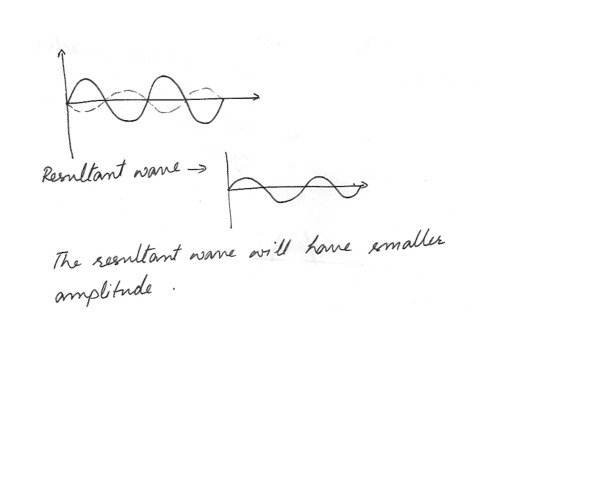 Resultant wave →
The resultant wave will have smaller
amplitude .